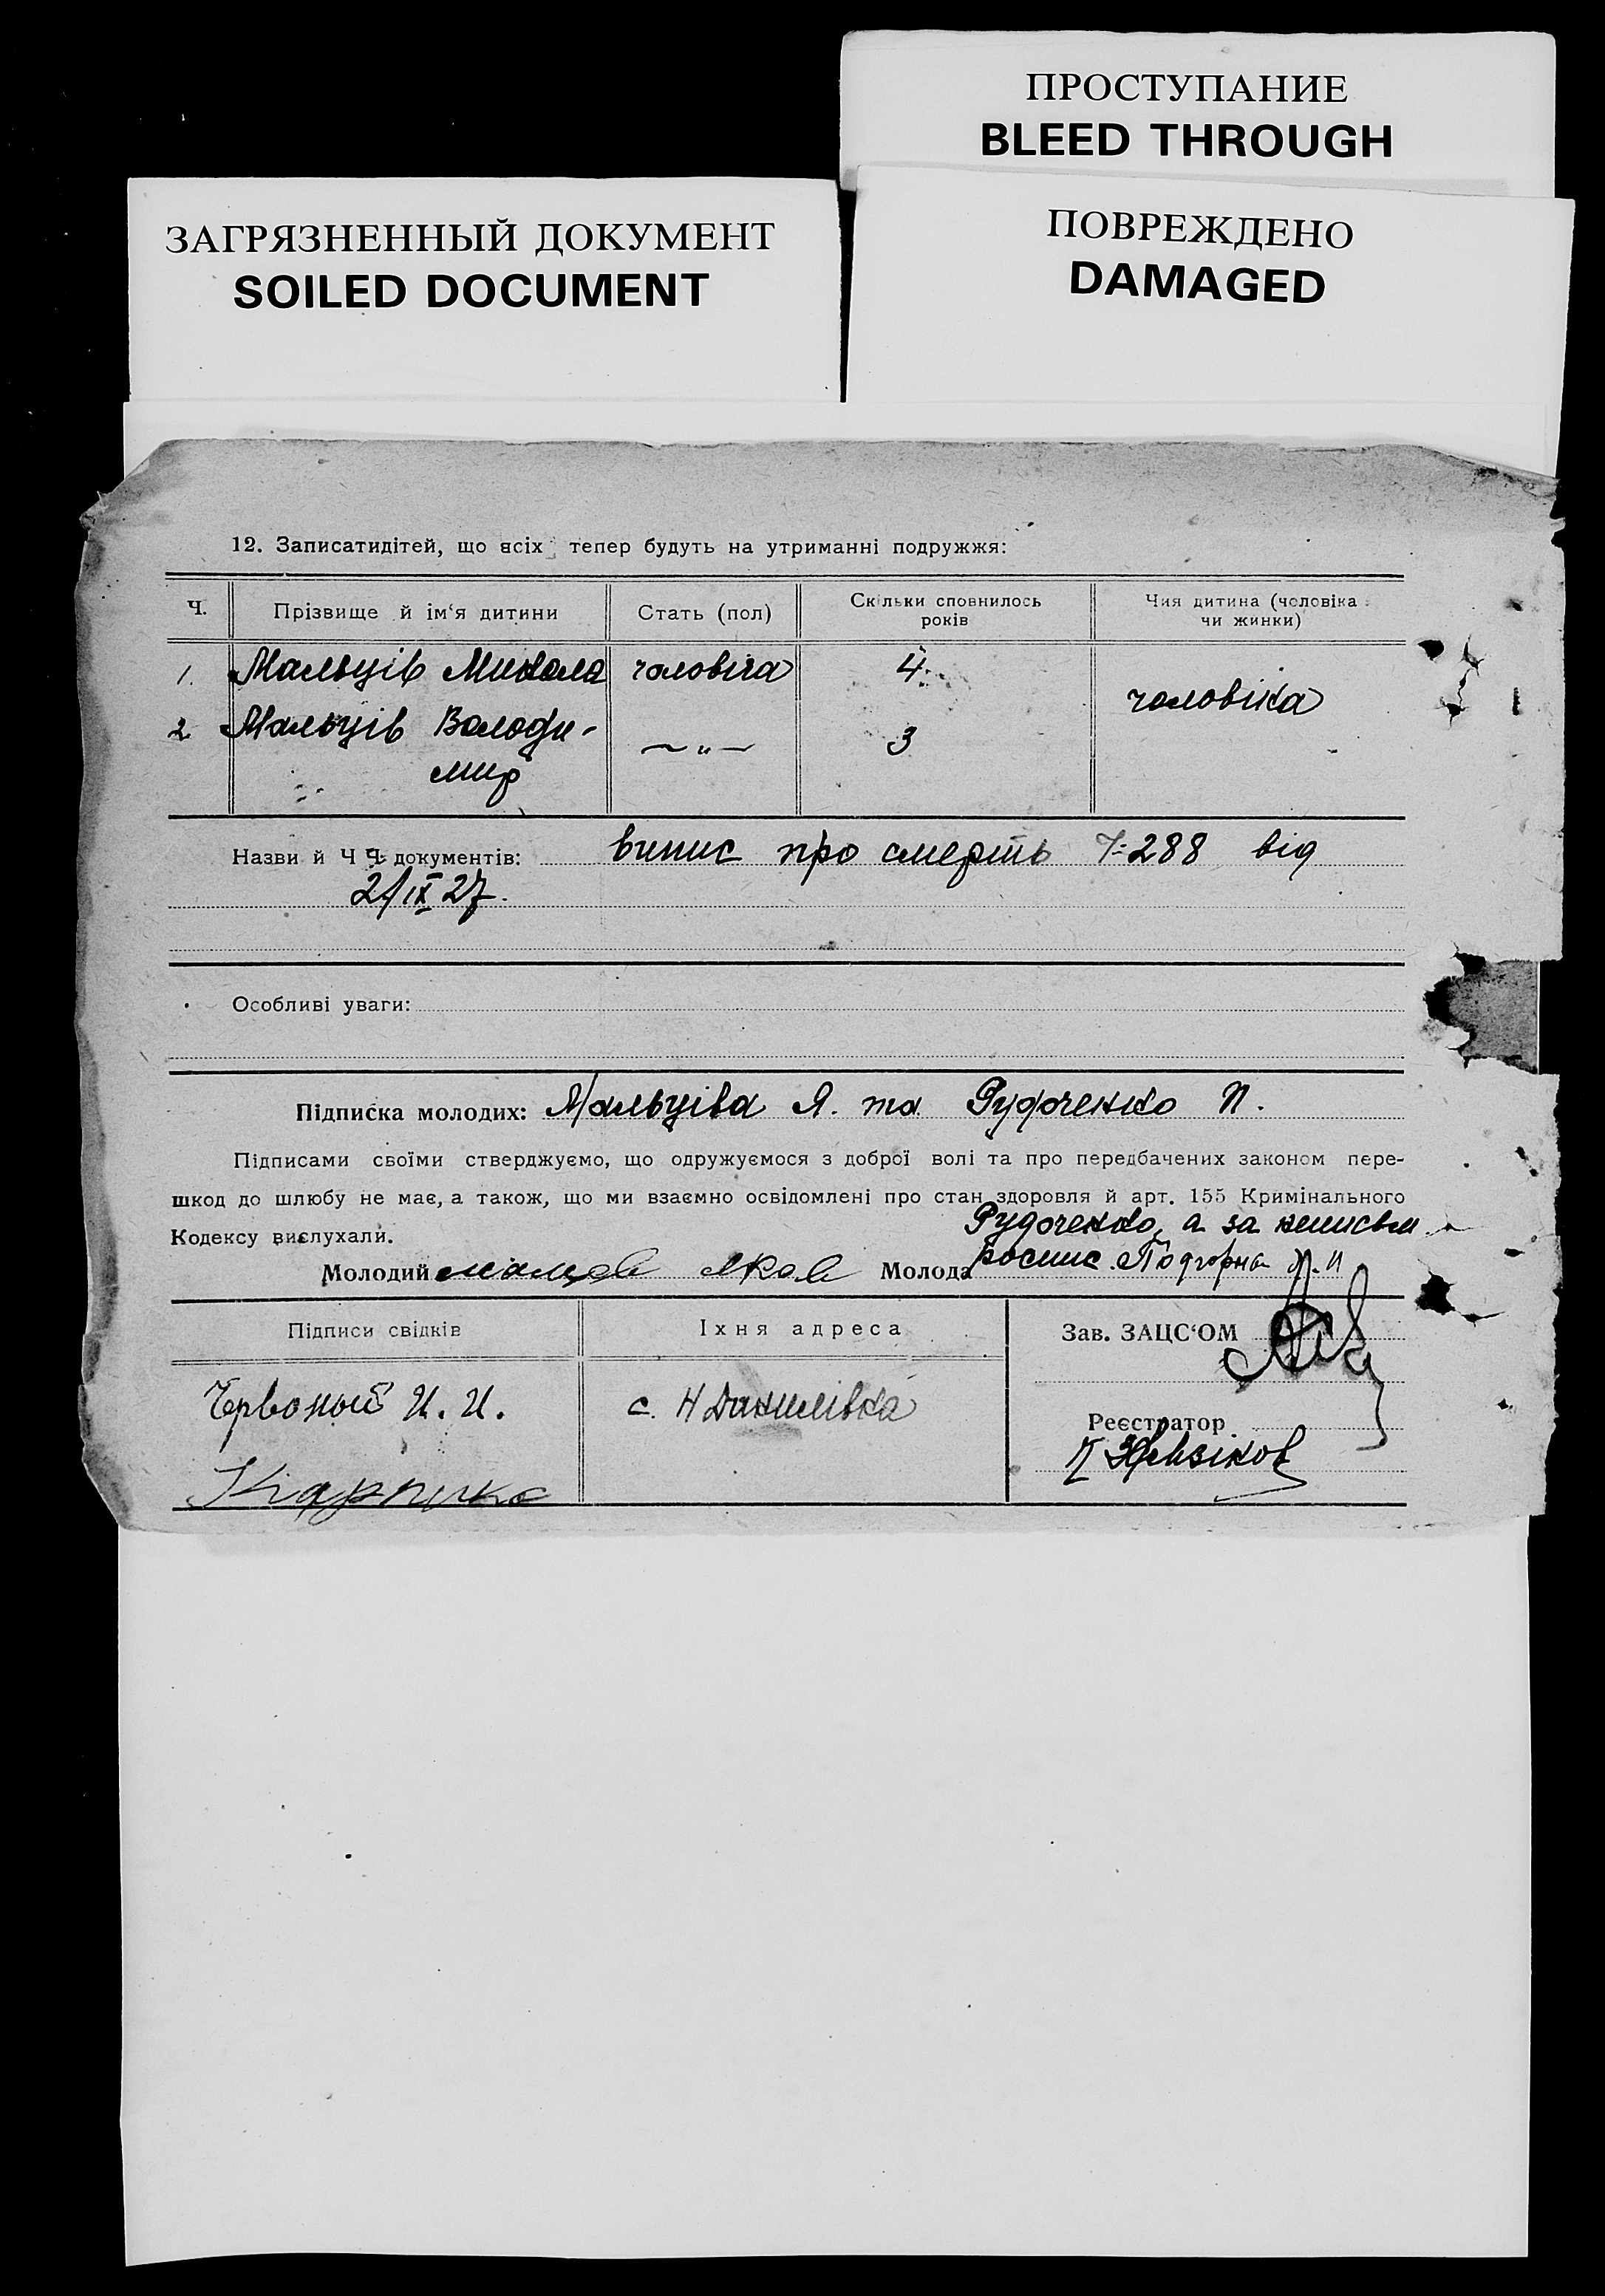 ПРОСТУПАНИЕ
BLEED THROUGH
ЗАГРЯЗНЕННЫЙ ДОКУМЕНТ
SOILED DOCUMENT
ПОВРЕЖДЕНО
DAMAGED
12. Записатидітей, що всіх тепер будуть на утриманні подружжя:
Ч. Прізвище й ім‘я дитини Стать (пол) Скільки сповнилось років Чия дитина (чоловіка чи жинки)
1. Мальців Микола чоловіча 4 чоловіка
2 Мальців Володи- —"— 3
мир
Назви й Ч Ч документів: випис про смерть Ч 288 від
21/IX 27.
Особливі уваги:
Підписка молодих: Мальціва Я. та Рудоченко П.
Підписами своїми стверджуємо, що одружуємося з доброї волі та про передбачених законом пере-
шкод до шлюбу не має, а також, що ми взаємно освідомлені про стан здоровля й арт. 155 Кримінального
Кодексу вислухали.
Рудоченко, а за
Молодий Яков Молода роспис Подгорна
Підписи свідків Їхня адреса Зав. ЗАЦС‘ОМ
Червоный И. И. с. Н Данилівка
Реєстратор